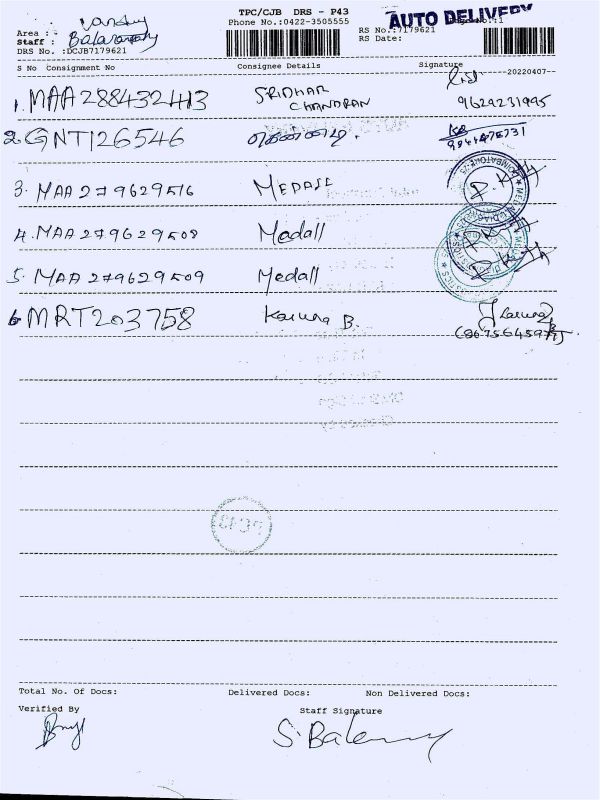 TPC/CJB DRS - P43
AUTO DELIVERY
Phone No.:0422-3505555
Area :
Staff :
RS No.:7179621
RS Date:
DRS No. :DCJB7179621
S No Consignment No Consignee Details Signature
20220407
1. MAA288432413 SRIDHAR CHANDRAN 9629231995
2. GNT126546
3. MAA279629516 MEDALL
4. MAA279629508 Medall
5. MAA279629509 Medall
6 MRT203758 Karuna B.
Total No. Of Docs: Delivered Docs: Non Delivered Docs:
Verified By Staff Signature